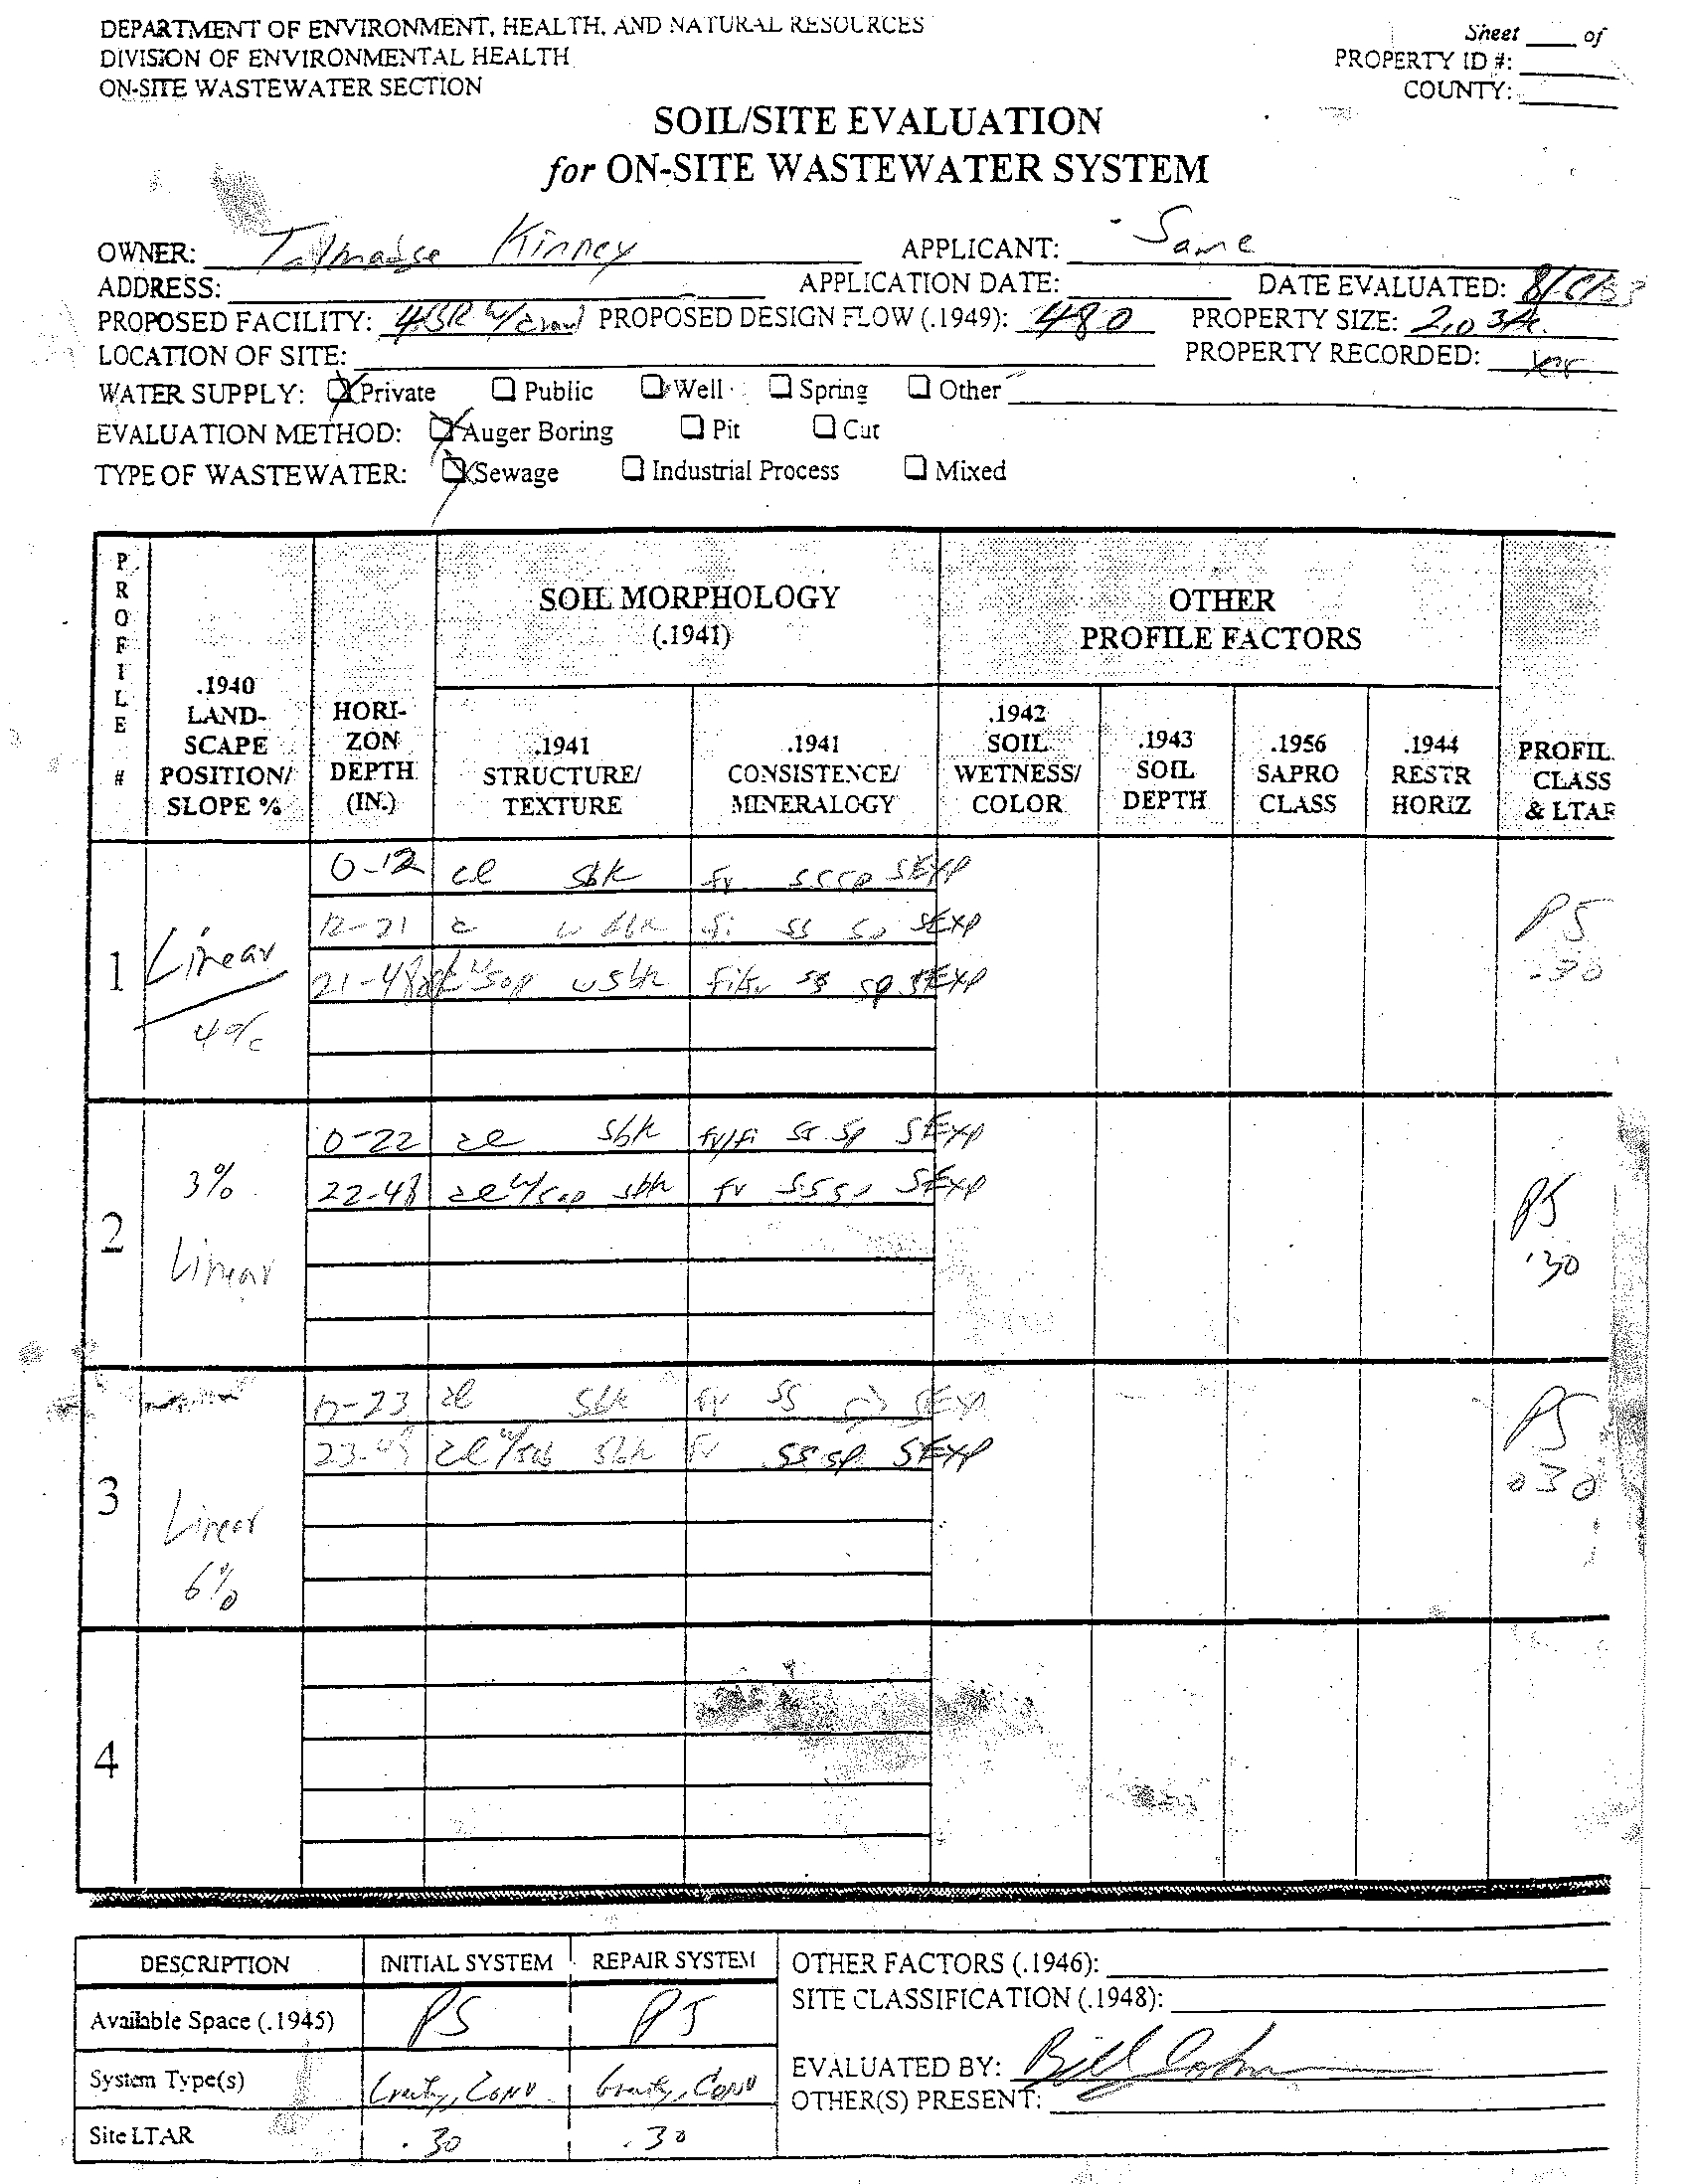 DEPARTMENT OF ENVIRONMENT, HEALTH, AND NATURAL RESOURCES
DIVISION OF ENVIRONMENTAL HEALTH
ON-SITE WASTEWATER SECTION
Sheet ____ of
PROPERTY ID #:
COUNTY:
SOIL/SITE EVALUATION
for ON-SITE WASTEWATER SYSTEM
OWNER: Talmadge Kinney APPLICANT: Same
ADDRESS: APPLICATION DATE: DATE EVALUATED:
PROPOSED FACILITY: 4BR w/crawl PROPOSED DESIGN FLOW (.1949): 480 PROPERTY SIZE: 2.03Ac.
LOCATION OF SITE: PROPERTY RECORDED: Yes
WATER SUPPLY: Private Public Well Spring Other
EVALUATION METHOD: Auger Boring Pit Cut
TYPE OF WASTEWATER: Sewage Industrial Process Mixed
PROFILE #
.1940 LAND-SCAPE POSITION/ SLOPE %
HORI-ZON DEPTH (IN.)
SOIL MORPHOLOGY (.1941)
OTHER PROFILE FACTORS
.1941 STRUCTURE/ TEXTURE
.1941 CONSISTENCE/ MINERALOGY
.1942 SOIL WETNESS/ COLOR
.1943 SOIL DEPTH
.1956 SAPRO CLASS
.1944 RESTR HORIZ
PROFIL. CLASS & LTAR
1 Linear 4%
0-12 cl sbk fr ss sp SEXP
12-21 c w sbk fi ss sp SEXP
21-48 w/sap wsbk fi/fr ss sp SEXP
PS .30
2 3% Linear
0-22 cl sbk fr/fi ss sp SEXP
22-48 cl w/sap sbk fr ss sp SEXP
PS .30
3 Linear 6%
0-23 cl sbk fr ss sp SEXP
23-48 cl w/sap sbk fr ss sp SEXP
PS .30
4
DESCRIPTION INITIAL SYSTEM REPAIR SYSTEM
Available Space (.1945) PS PS
System Type(s) Gravity, Conv Gravity, Conv
Site LTAR .30 .30
OTHER FACTORS (.1946):
SITE CLASSIFICATION (.1948):
EVALUATED BY: Bill
OTHER(S) PRESENT: